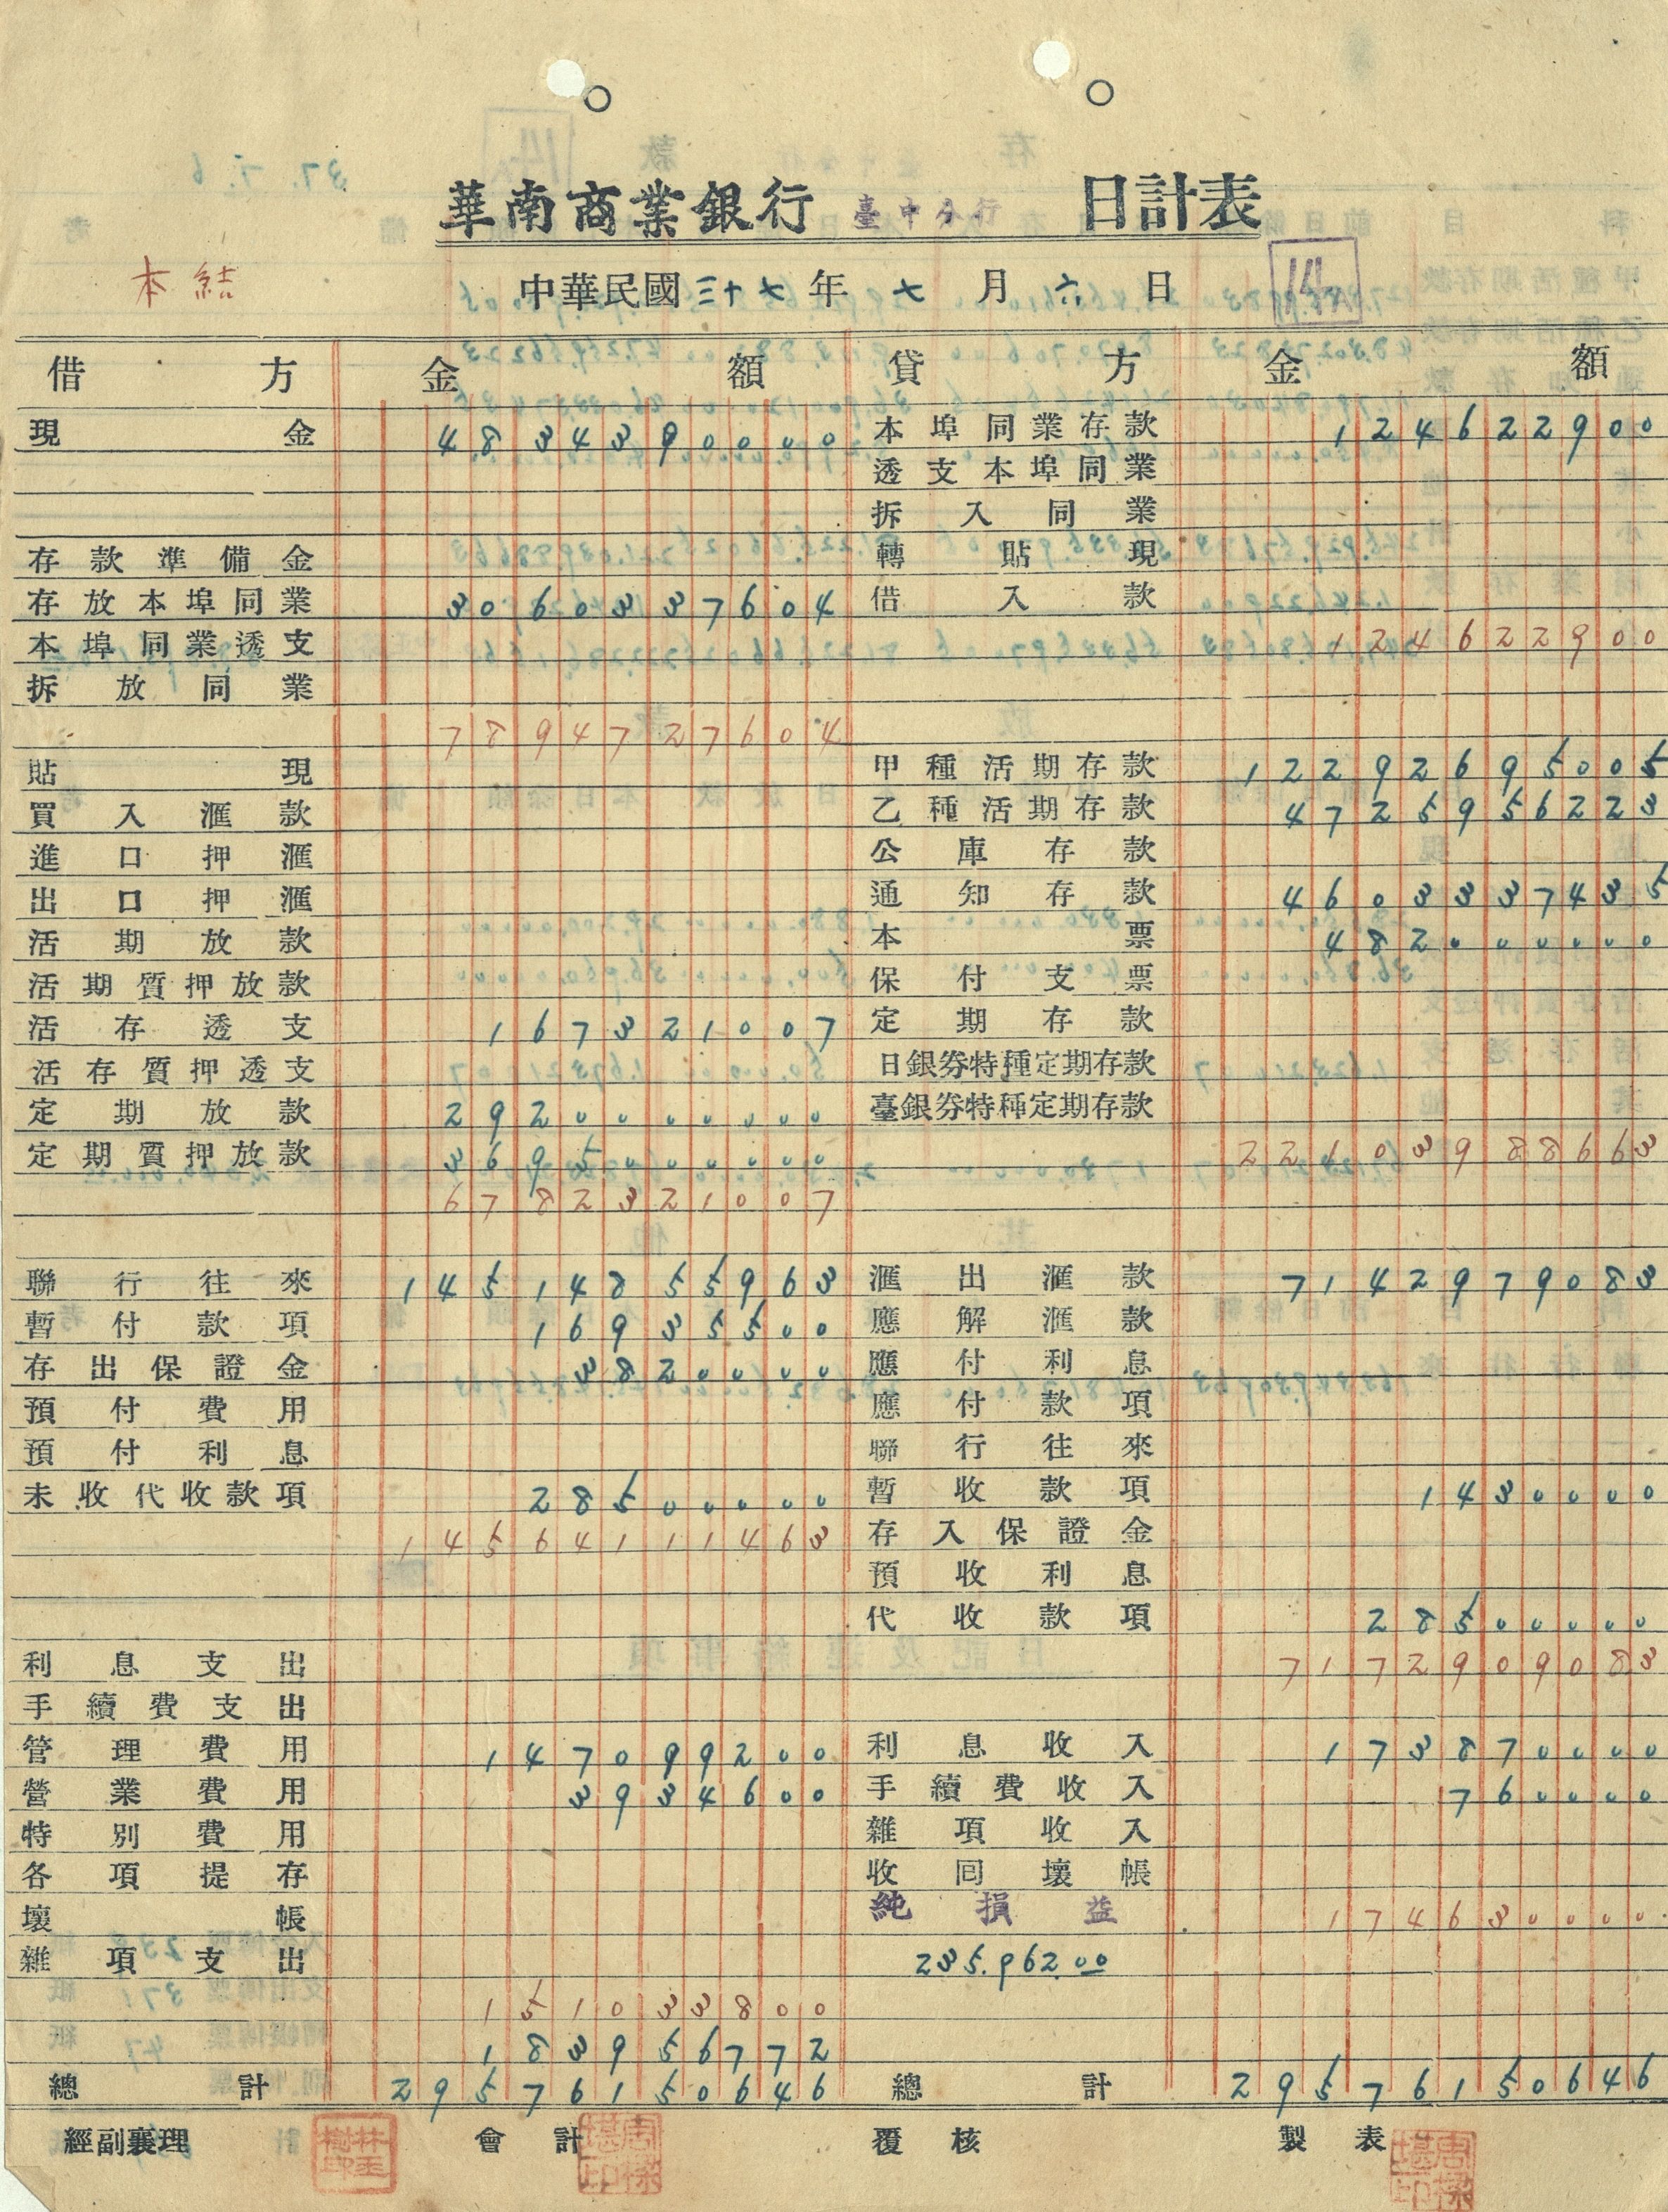 華南商業銀行 臺中分行 日計表
本結
中華民國三十七年七月六日
14
借方 金額
現金 4834390000
存款準備金
存放本埠同業 3060337604
本埠同業透支
拆放同業
7894727604
貼現
買入滙款
進口押滙
出口押滙
活期放款
活期質押放款
活存透支 167321007
活存質押透支
定期放款 2920000000
定期質押放款 3695000000
6782321007
聯行往來 14514855963
暫付款項 16935500
存出保證金 3820000
預付費用
預付利息
未收代收款項 28500000
14564111463
利息支出
手續費支出
管理費用 147099200
營業費用 3934600
特別費用
各項提存
壞帳
雜項支出
151033800
183956772
總計 29576150646
貸方 金額
本埠同業存款 124622900
透支本埠同業
拆入同業
轉貼現
借入款
124622900
甲種活期存款 12292695005
乙種活期存款 4725956223
公庫存款
通知存款 4603337435
本票 482000000
保付支票
定期存款
日銀券特種定期存款
臺銀券特種定期存款
22103988663
滙出滙款 7142979083
應解滙款
應付利息
應付款項
聯行往來
暫收款項 1430000
存入保證金
預收利息
代收款項 28500000
7172909083
利息收入 173870000
手續費收入 760000
雜項收入
收回壞帳
純損益 174630000
235.962.00
總計 29576150646
經副襄理 會計 覆核 製表